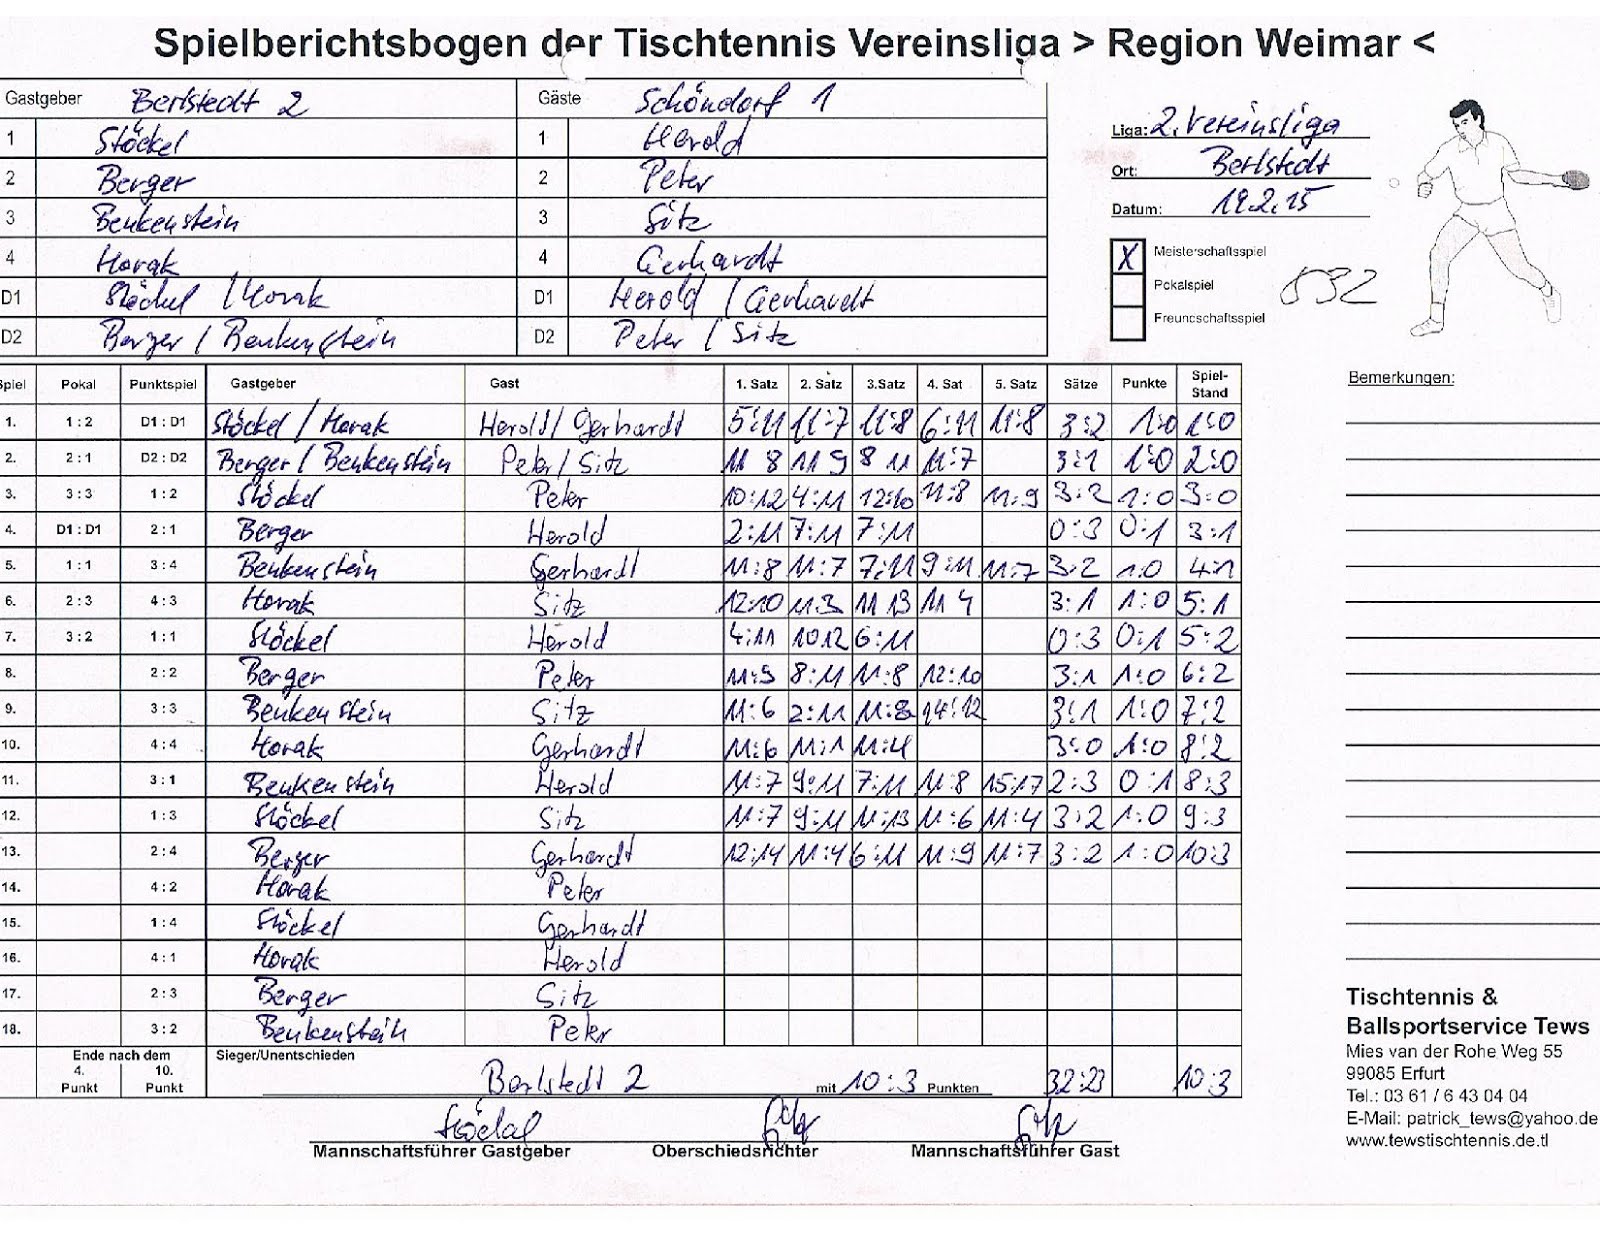 Spielberichtsbogen der Tischtennis Vereinsliga > Region Weimar <
Gastgeber Berlstedt 2 Gäste Schöndorf 1
1 Stöckel 1 Herold
2 Berger 2 Peter
3 Beukenstein 3 Sitz
4 Horak 4 Gerhardt
D1 Stöckel / Horak D1 Herold / Gerhardt
D2 Berger / Beukenstein D2 Peter / Sitz
Liga: 2. Vereinsliga
Ort: Berlstedt
Datum: 19.2.15
X Meisterschaftsspiel
Pokalspiel
Freundschaftsspiel
532
Spiel Pokal Punktspiel Gastgeber Gast 1. Satz 2. Satz 3.Satz 4. Sat 5. Satz Sätze Punkte Spiel-Stand
1. 1 : 2 D1 : D1 Stöckel / Horak Herold / Gerhardt 5:11 11:7 11:8 6:11 11:8 3:2 1:0 1:0
2. 2 : 1 D2 : D2 Berger / Beukenstein Peter / Sitz 11 8 11 9 8 11 11:7 3:1 1:0 2:0
3. 3 : 3 1 : 2 Stöckel Peter 10:12 4:11 12:10 11:8 11:9 3:2 1:0 3:0
4. D1 : D1 2 : 1 Berger Herold 2:11 7:11 7:11 0:3 0:1 3:1
5. 1 : 1 3 : 4 Beukenstein Gerhardt 11:8 11:7 7:11 9:11 11:7 3:2 1:0 4:1
6. 2 : 3 4 : 3 Horak Sitz 12:10 11:3 11 13 11 4 3:1 1:0 5:1
7. 3 : 2 1 : 1 Stöckel Herold 4:11 10 12 6:11 0:3 0:1 5:2
8. 2 : 2 Berger Peter 11:9 8:11 11:8 12:10 3:1 1:0 6:2
9. 3 : 3 Beukenstein Sitz 11:6 2:11 11:8 14:12 3:1 1:0 7:2
10. 4 : 4 Horak Gerhardt 11:6 11:1 11:4 3:0 1:0 8:2
11. 3 : 1 Beukenstein Herold 11:7 9:11 7:11 11:8 15:17 2:3 0:1 8:3
12. 1 : 3 Stöckel Sitz 11:7 9:11 11:13 11:6 11:4 3:2 1:0 9:3
13. 2 : 4 Berger Gerhardt 12:14 11:4 6:11 11:9 11:7 3:2 1:0 10:3
14. 4 : 2 Horak Peter
15. 1 : 4 Stöckel Gerhardt
16. 4 : 1 Horak Herold
17. 2 : 3 Berger Sitz
18. 3 : 2 Beukenstein Peter
Ende nach dem
4. Punkt 10. Punkt
Sieger/Unentschieden
Berlstedt 2 mit 10:3 Punkten 32:23 10:3
Stöckel
Mannschaftsführer Gastgeber Oberschiedsrichter Mannschaftsführer Gast
Bemerkungen:
Tischtennis &
Ballsportservice Tews
Mies van der Rohe Weg 55
99085 Erfurt
Tel.: 03 61 / 6 43 04 04
E-Mail: patrick_tews@yahoo.de
www.tewstischtennis.de.tl